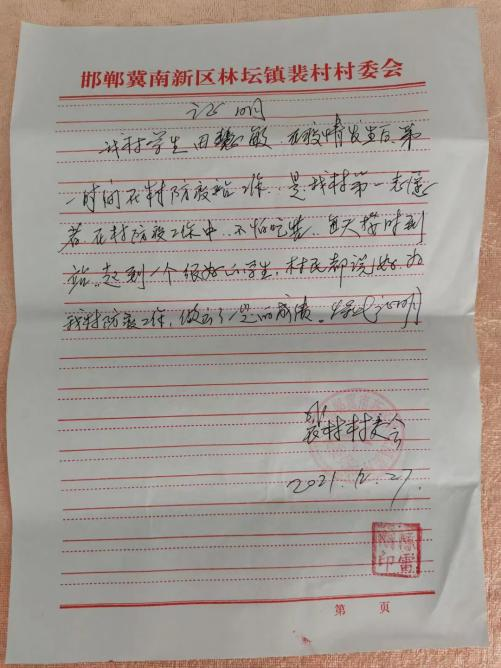 邯郸冀南新区林坛镇裴村村委会
证明
我村学生田慧敏,在疫情发生后,第
一时间在村防疫站工作,是我村第一志愿
者,在村防疫工作中,不怕吃苦,每天按时到
站,起到一个很好的学生,村民都说好,为
我村防疫工作,做出了一定的成绩。特此证明
裴村村委会
2021.12.27.
第 页